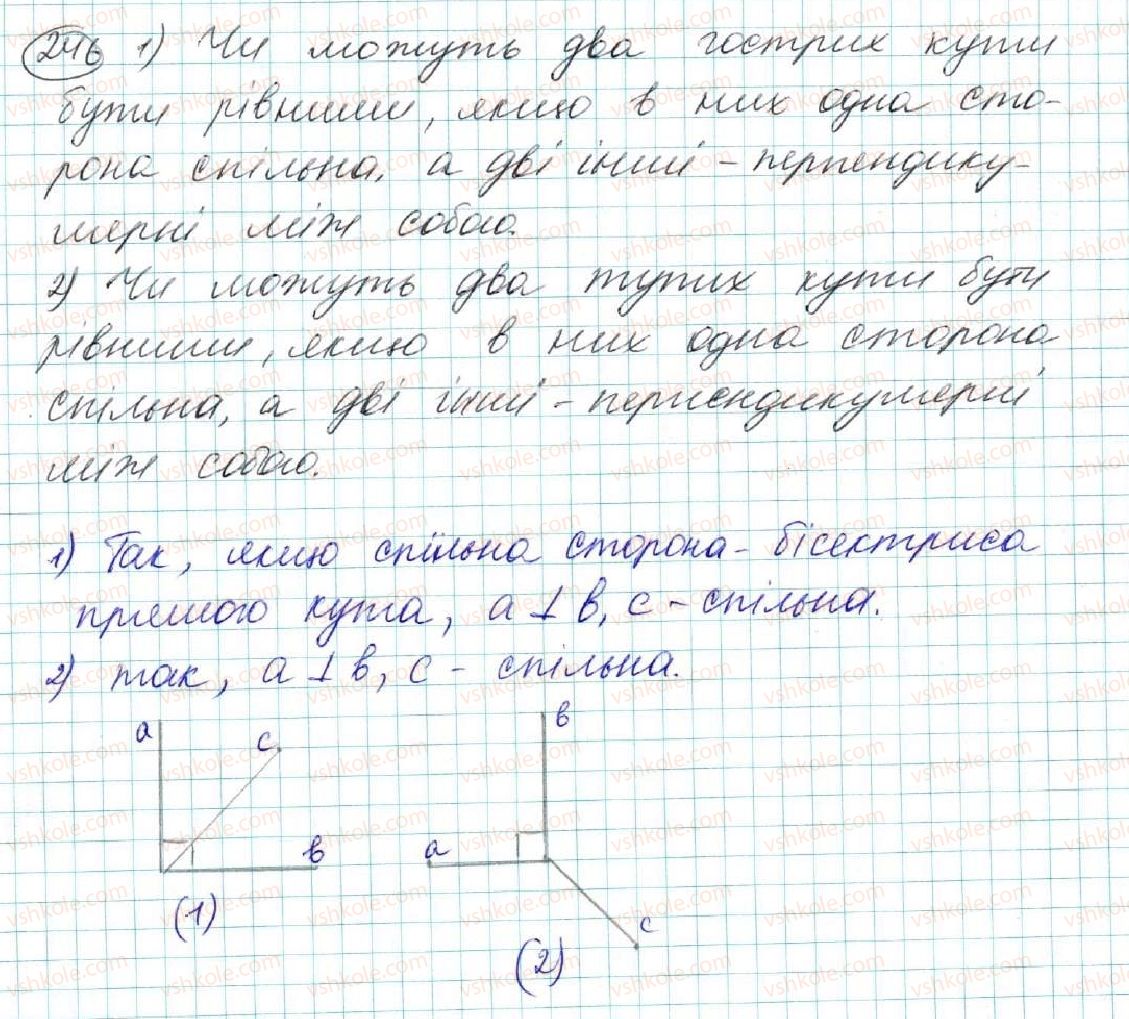 246 1) Чи можуть два гострих кути
бути рівними, якщо в них одна сто-
рона спільна, а дві інші - перпендику-
лярні між собою.
2) Чи можуть два тупих кути бути
рівними, якщо в них одна сторона
спільна, а дві інші - перпендикулярні
між собою.
1) Так, якщо спільна сторона - бісектриса
прямого кута, a ⊥ b, c - спільна.
2) так, a ⊥ b, c - спільна.
a c b
(1)
b a c
(2)
vshkole.com